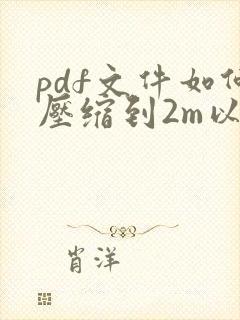 pdf文件如何
壓缩到2m以
肖洋